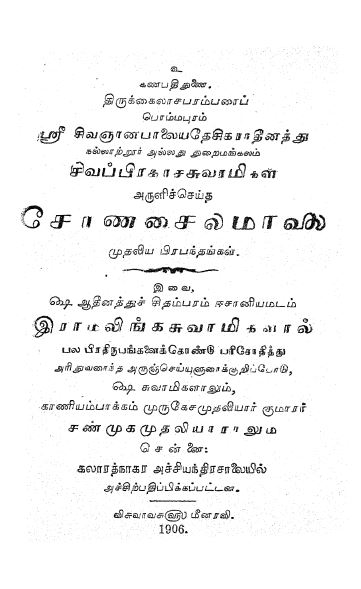 உ
கணபதி துணை.
திருக்கைலாசபரம்பரைப்
பொம்மபுரம்
ஸ்ரீ சிவஞானபாலையதேசிகராதீனத்து
கல்லாற்றூர் அல்லது துறைமங்கலம்
சிவப்பிரகாசசுவாமிகள்
அருளிச்செய்த
சோணசைலமாலை
முதலிய பிரபந்தங்கள்.
இவை,
ஷெ ஆதீனத்துச் சிதம்பரம் ஈசானியமடம்
இராமலிங்கசுவாமிகளால்
பல பிரதிரூபங்களைக்கொண்டு பரிசோதித்து
அரிதுணர்ந்த அருஞ்செய்யுளுரைக்குறிப்போடு,
ஷெ சுவாமிகளாலும்,
காணியம்பாக்கம் முருகேசமுதலியார் குமாரர்
சண்முகமுதலியாராலும்
சென்னை:
கலாரத்நாகர அச்சியந்திரசாலையில்
அச்சிற்பதிப்பிக்கப்பட்டன.
விசுவாவசுஹு மீனரவி.
1906.